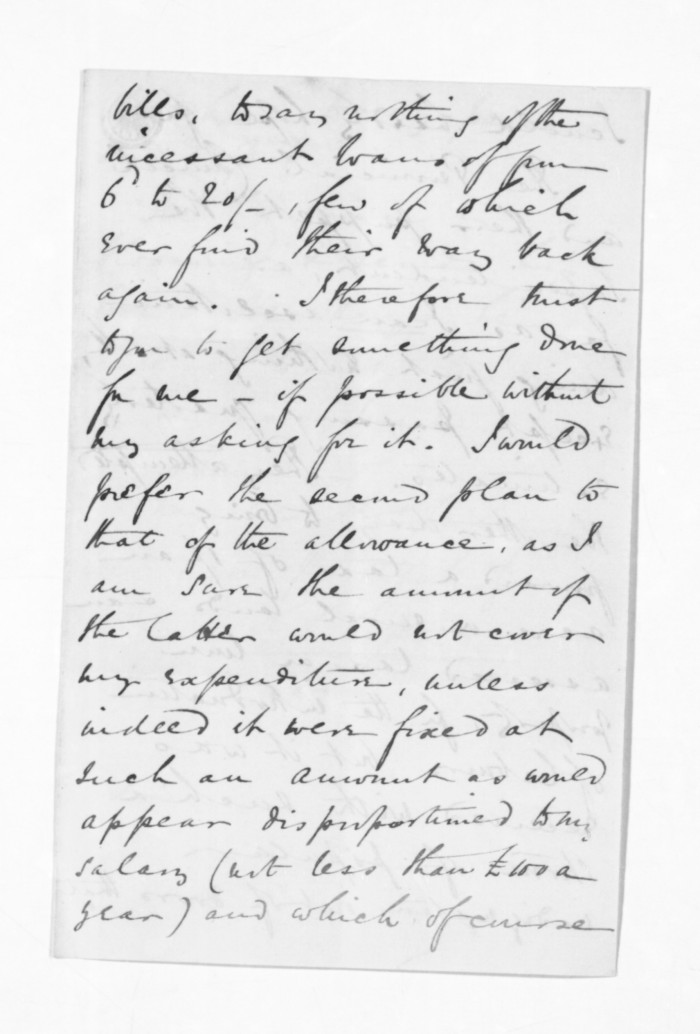 bills, to say nothing of the
incessant loans of from
6d to 20/-, few of which
ever find their way back
again. I therefore trust
to you to get something done
for me - if possible without
my asking for it. I would
prefer the second plan to
that of the allowance, as I
am sure the amount of
the latter would not cover
my expenditure, unless
indeed it were fixed at
such an amount as would
appear disproportioned to my
salary (not less than £100 a
year) and which of course